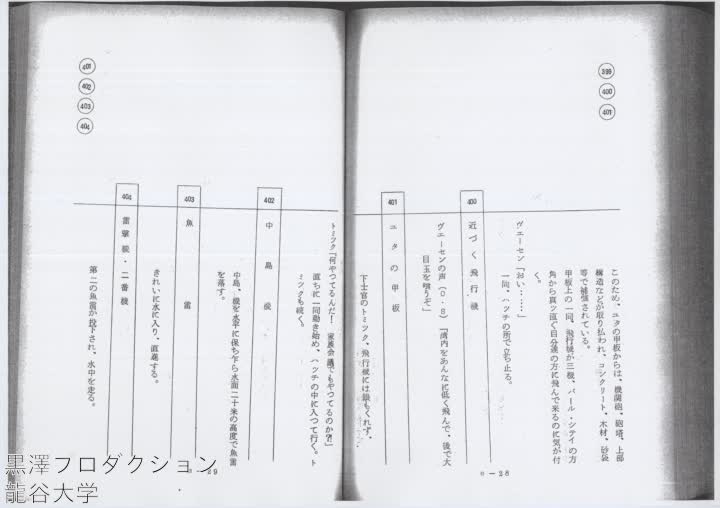 399
400
401
このため、ユタの甲板からは、機関砲、砲塔、上部
構造などが取り払われ、コンクリート、木材、砂袋
等で補強されている。
甲板上の一同、飛行機が三機、パール・シティの方
角から真ッ直ぐ自分達の方に飛んで来るのに気が付
く。
ヴェーセン「おい……」
一同、ハッチの所で立ち止る。
400
近づく飛行機
ヴェーセンの声（O・S）「湾内をあんなに低く飛んで、後で大
目玉を喰うぞ」
401
ユタの甲板
下士官のトミツク、飛行機には眼もくれず、
トミツク「何やつてるんだ！家族会議でもやつてるのか⁈」
直ちに一同動き始め、ハツチの中に入つて行く。ト
ミツクも続く。
0－28
401
402
403
404
402
中島機
中島、機を水平に保ち乍ら水面二十米の高度で魚雷
を落す。
403
魚雷
きれいに水に入り、直進する。
404
雷撃機・二番機
第二の魚雷が投下され、水中を走る。
－29
黒澤プロダクション
龍谷大学